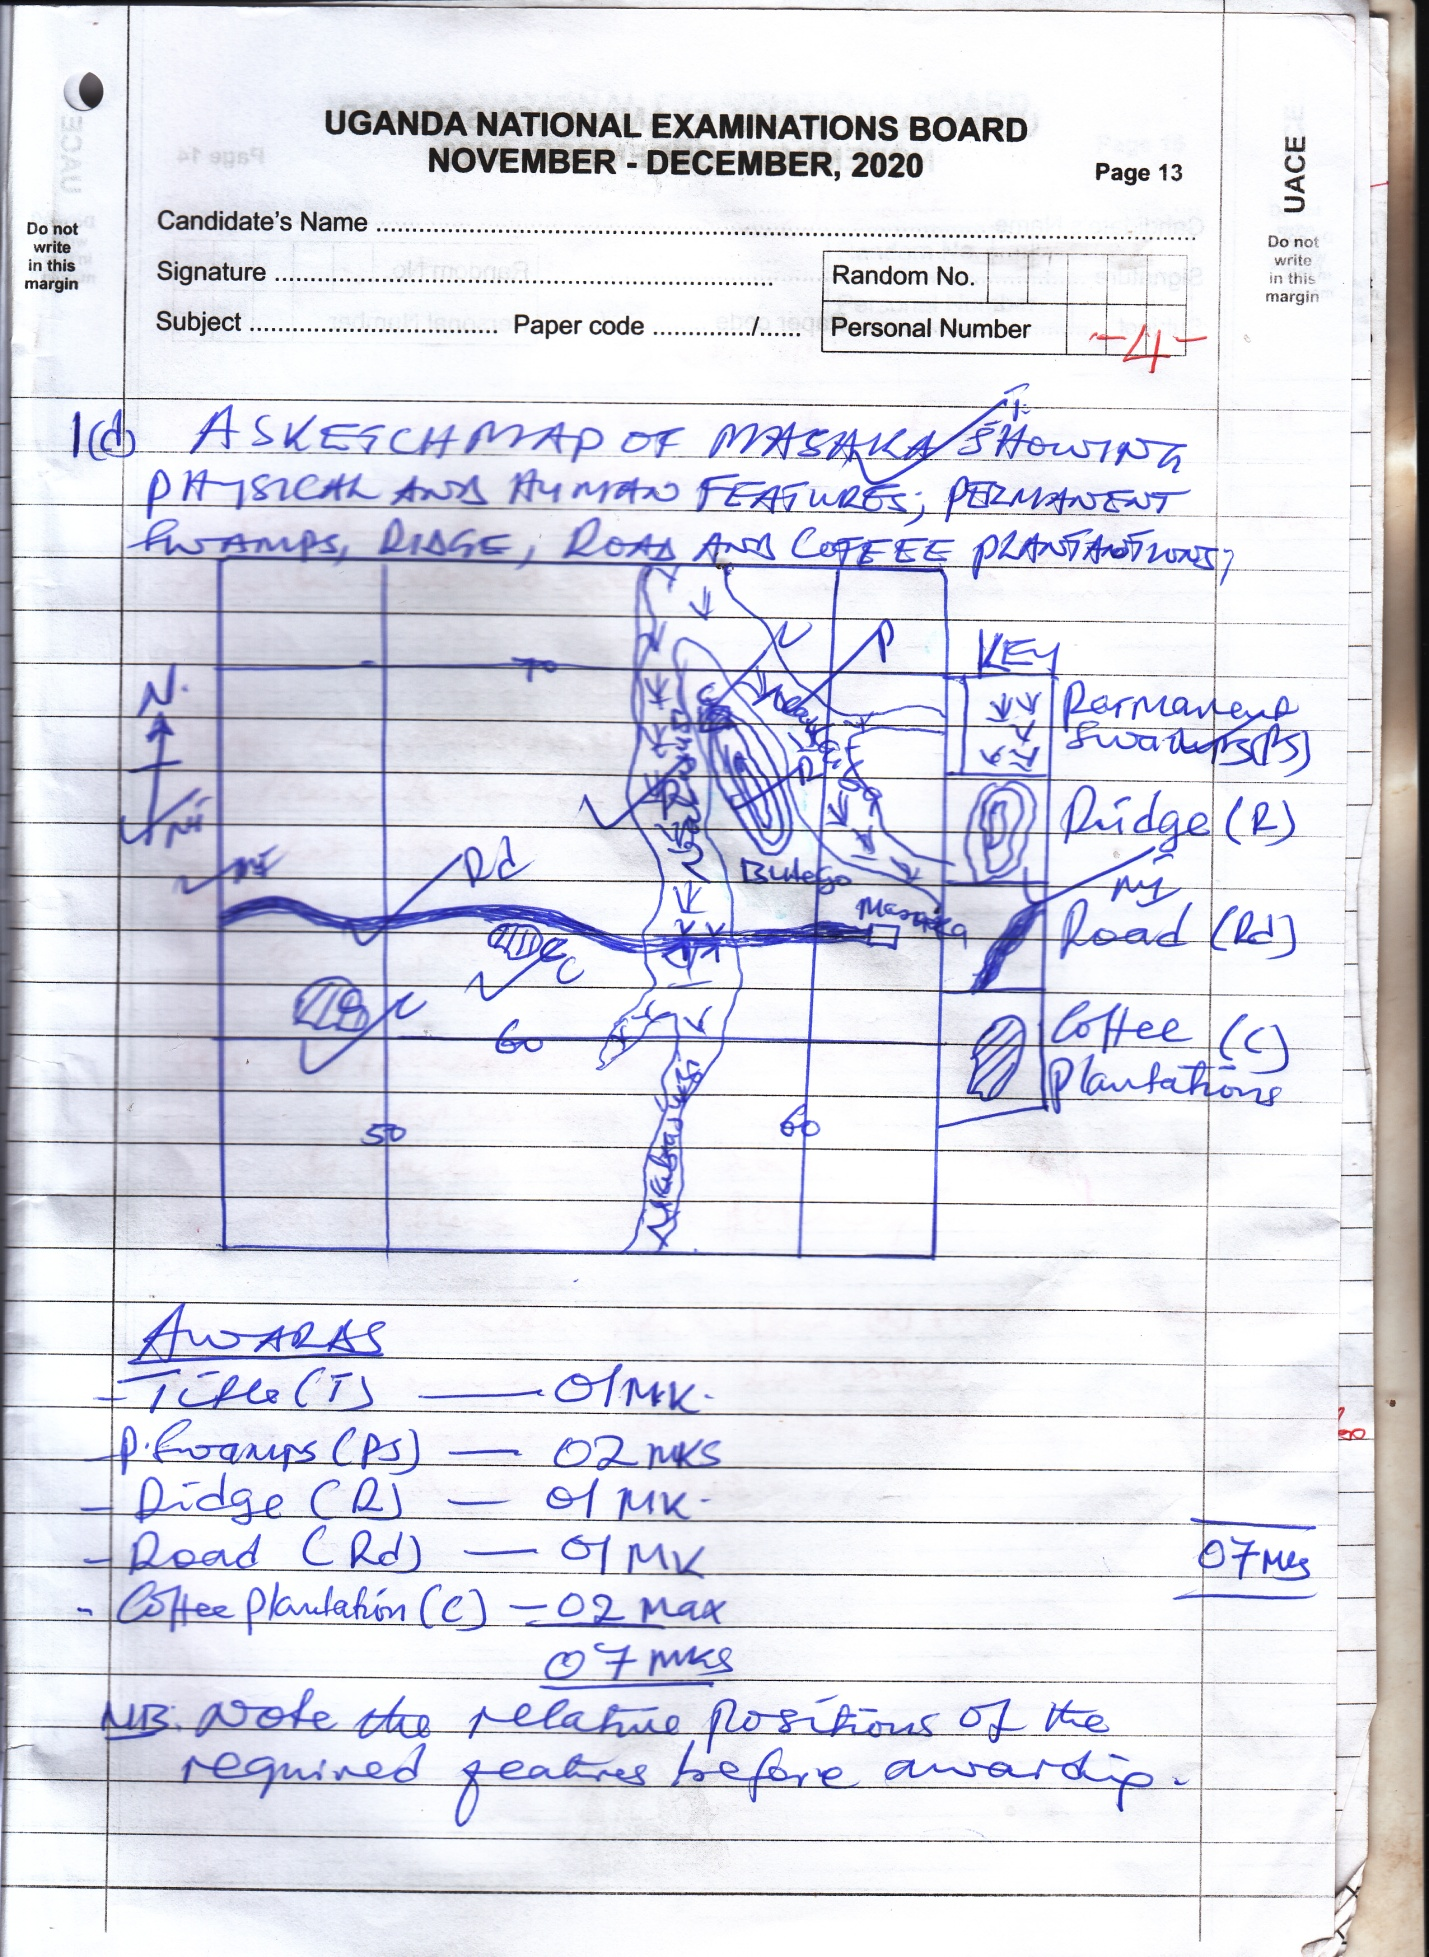 UACE
UGANDA NATIONAL EXAMINATIONS BOARD
NOVEMBER - DECEMBER, 2020
Page 13
Do not
write
in this
margin
Do not
write
in this
margin
Candidate's Name
Signature
Random No.
Subject
Paper code ............./......
Personal Number
-4-
1(d) A SKETCH MAP OF MASAKA SHOWING
PHYSICAL AND HUMAN FEATURES; PERMANENT
SWAMPS, RIDGE, ROAD AND COFFEE PLANTANTIONS;
70
P
KEY
N.
Permanent
Swamps (PS)
R
Ridge (R)
Rd
Butego
Masaka
Road (Rd)
C
60
Coffee (C)
Plantations
50
60
AWARDS
- Title (T) — 01 MK.
- P. Swamps (PS) — 02 MKS
- Ridge (R) — 01 MK.
- Road (Rd) — 01 MK
07 Mks
- Coffee plantation (C) — 02 Max
07 MKS
NB. Note the relative positions of the
required features before awarding.